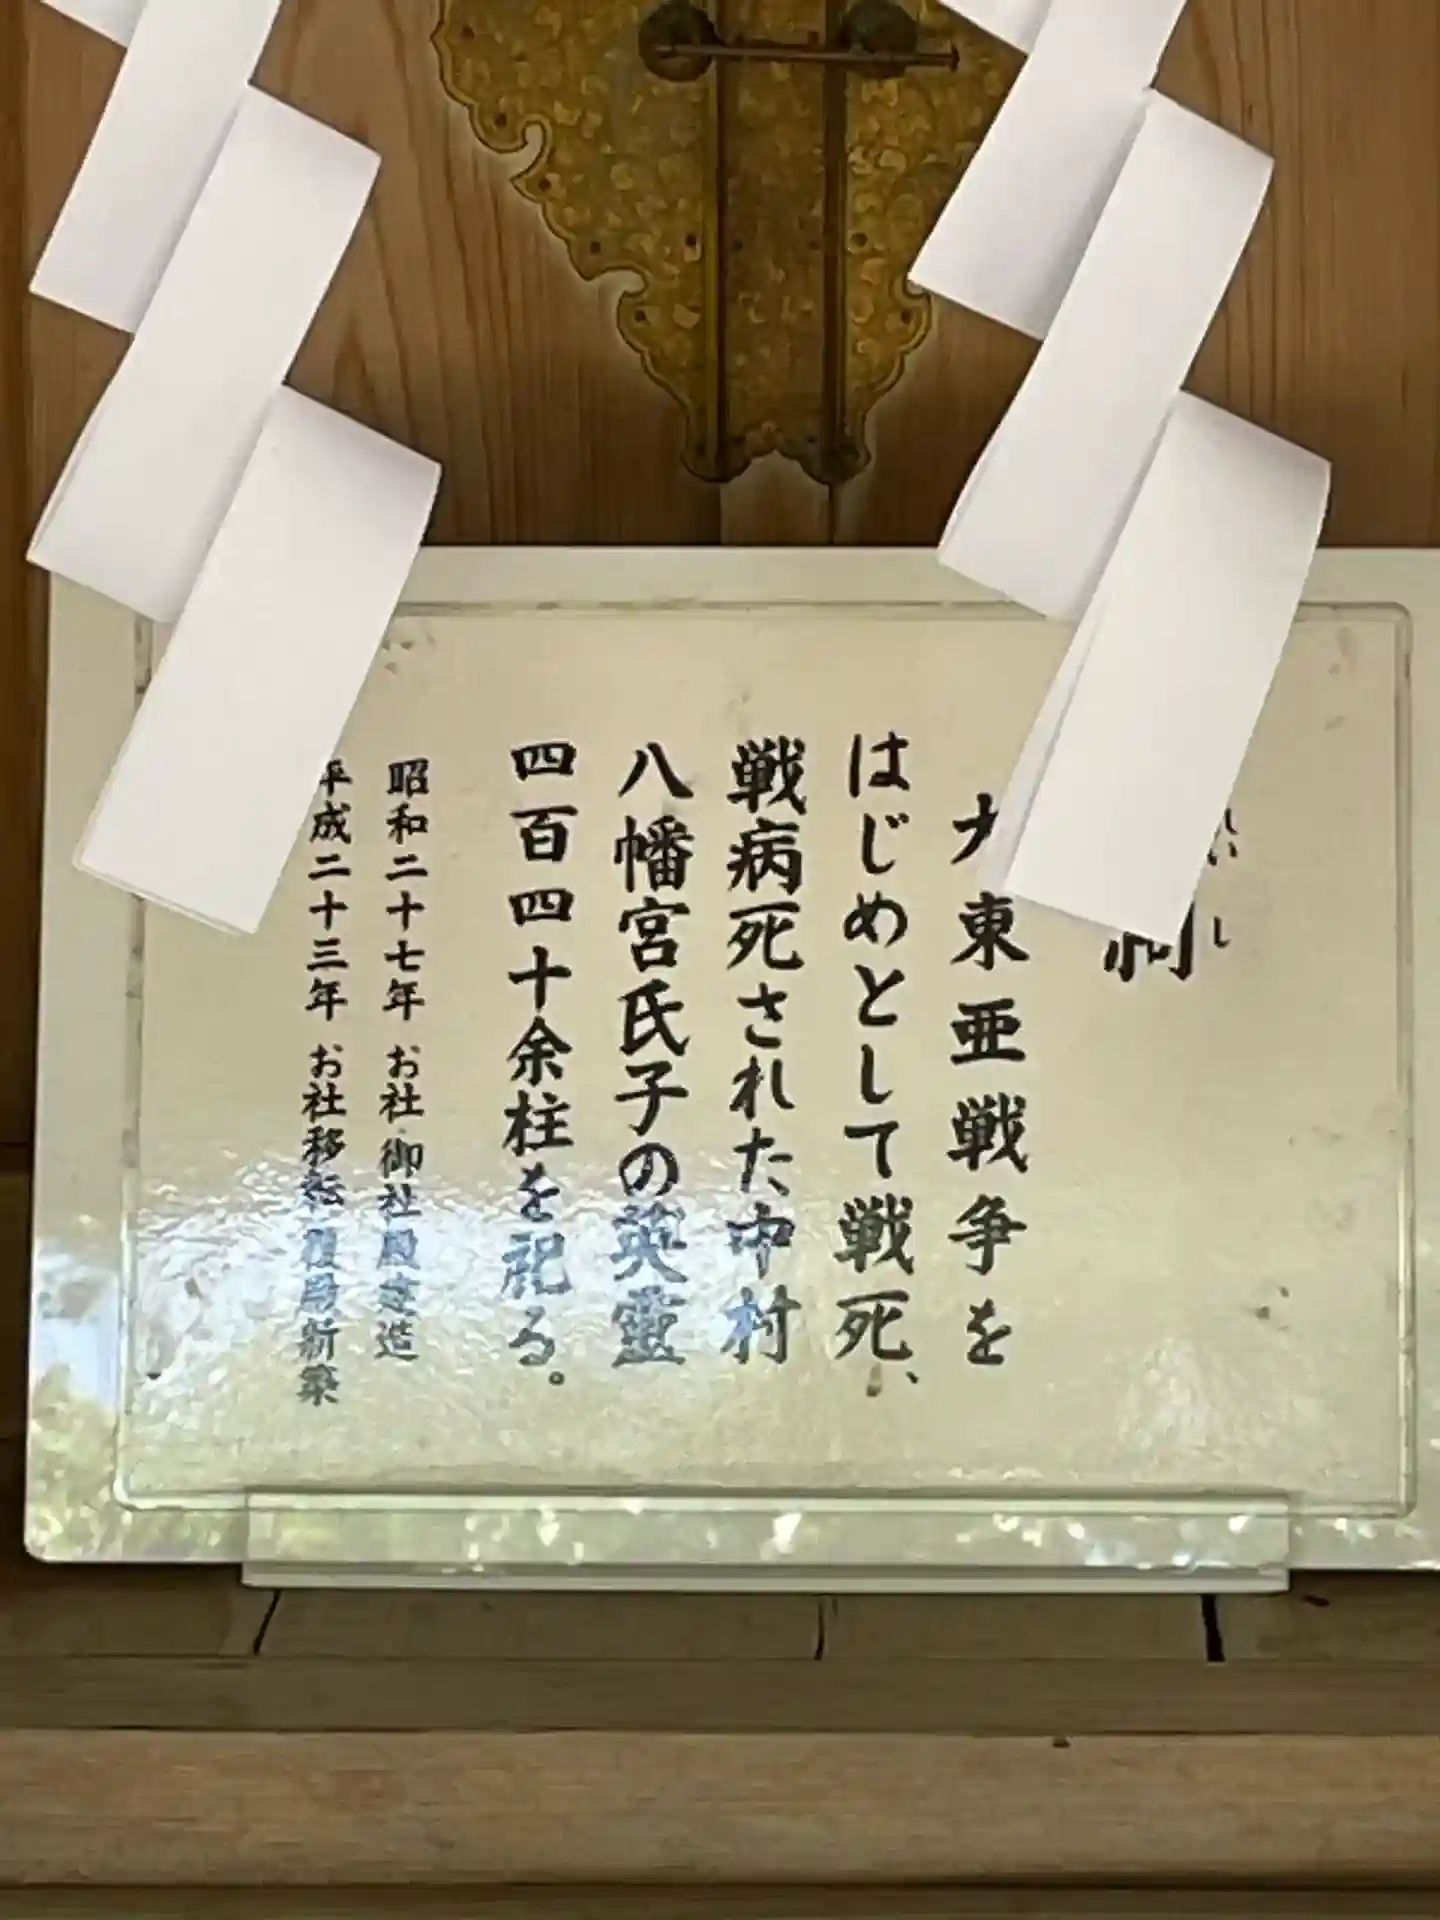 祠
いし
大東亜戦争を
はじめとして戦死、
戦病死された中村
八幡宮氏子の英霊
四百四十余柱を祀る。
昭和二十七年 お社御社殿造
平成二十三年 お社移転 殿新築